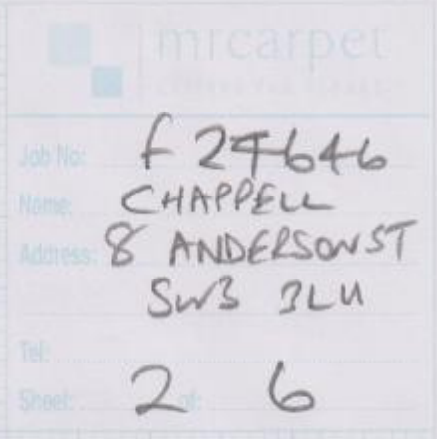 mrcarpet
Job No: F 24646
Name: CHAPPELL
Address: 8 ANDERSON ST
SW3 3LU
Tel:
Sheet: 2 of: 6